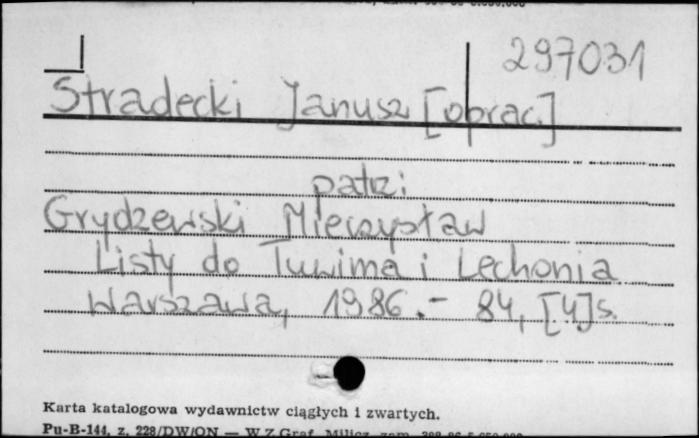 297031
Stradecki Janusz [oprac.]
patrz:
Grydzewski Mieczysław
Listy do Tuwima i Lechonia
Warszawa, 1986.- 84, [4]s.
Karta katalogowa wydawnictw ciągłych i zwartych.
Pu-B-144, z. 228/DW/ON — W.Z.Graf. Milicz, zam.